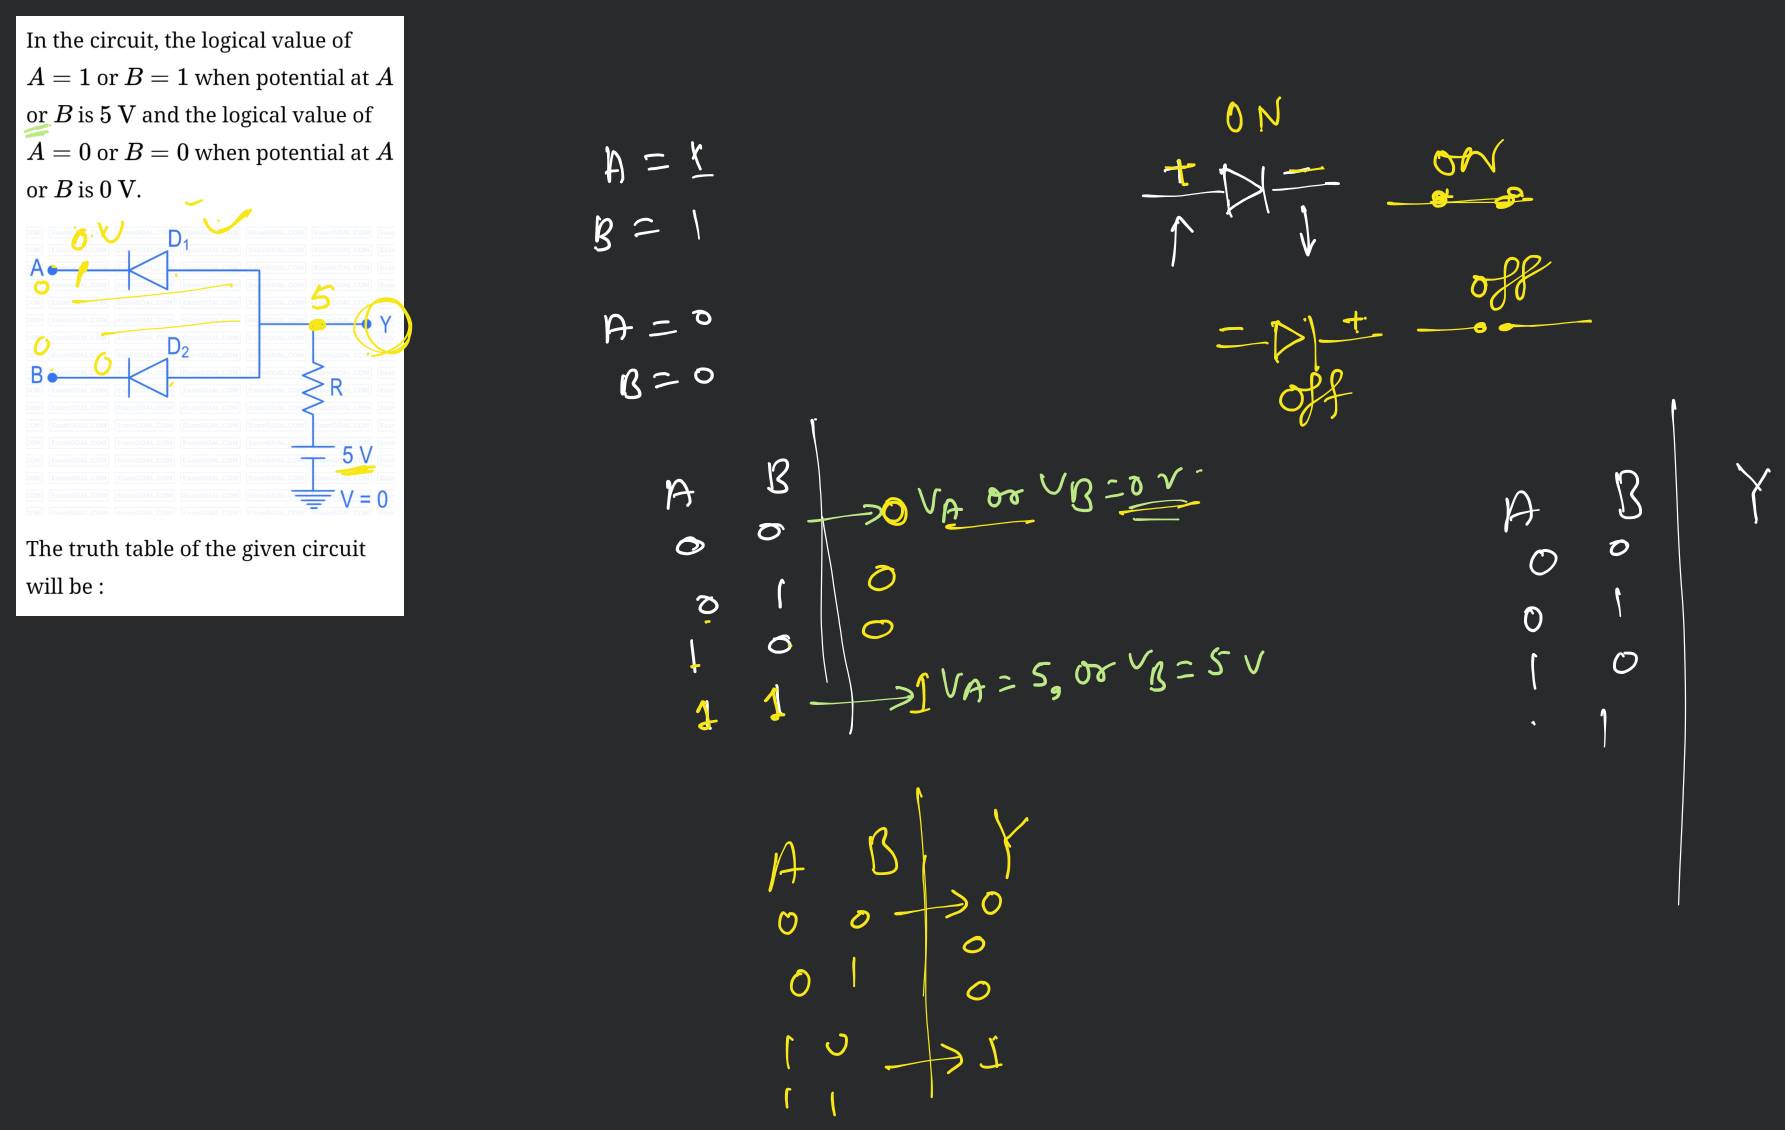 In the circuit, the logical value of
A = 1 or B = 1 when potential at A
or B is 5 V and the logical value of
A = 0 or B = 0 when potential at A
or B is 0 V.
0 V
D₁
A
0
5
Y
0
0
D₂
B
R
5 V
V = 0
The truth table of the given circuit
will be :
A = 1
B = 1
A = 0
B = 0
ON
+ −
ON
off
− +
off
A B
0 0 → 0 VA or VB = 0 V
0 1 0
1 0 0
1 1 → 1 VA = 5, or VB = 5 V
A B Y
0 0
0 1
1 0
1
A B Y
0 0 → 0
0 1 0
0
1 0 → 1
1 1